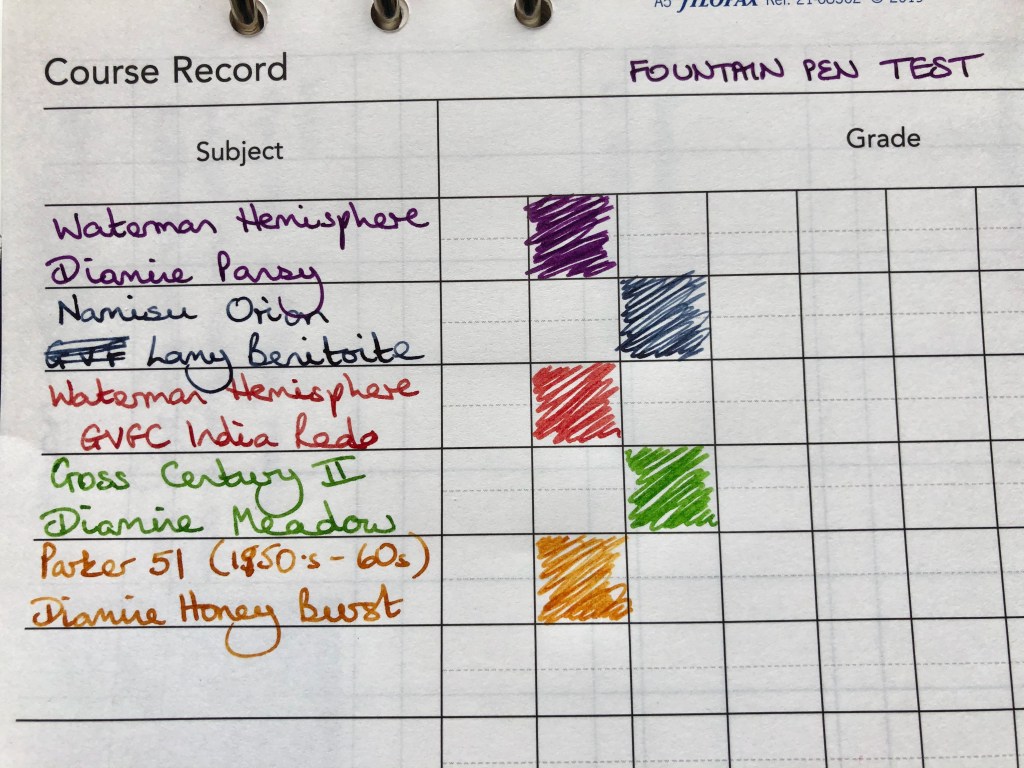 A5 FILOFAX Ref. 21-68502 © 2019
Course Record
FOUNTAIN PEN TEST
Subject
Grade
Waterman Hemisphere
Diamine Pansy
Namisu Orion
GVF Lamy Benitoite
Waterman Hemisphere
GVFC India Red
Cross Century II
Diamine Meadow
Parker 51 (1950's - 60s)
Diamine Honey Burst